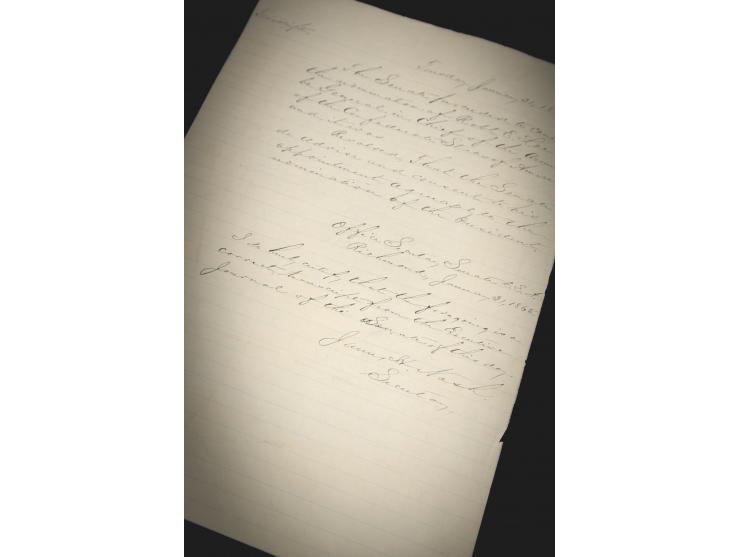 Transcript.
Tuesday January 31, 18
The Senate proceeded to cons
the nomination of Robt. E. Lee
be General in Chief of the Arm
of the Confederate States of Amer
and it was
Resolved, That the Senate
do advise and consent to his
appointment agreeably to the
nomination of the President.
Office Secretary Senate C.S.A.
Richmond, January 31, 1865.
I do hereby certify that the foregoing is a
correct transcript from the Executive
Journal of the Senate of this day.
James H. Nash.
Secretary.